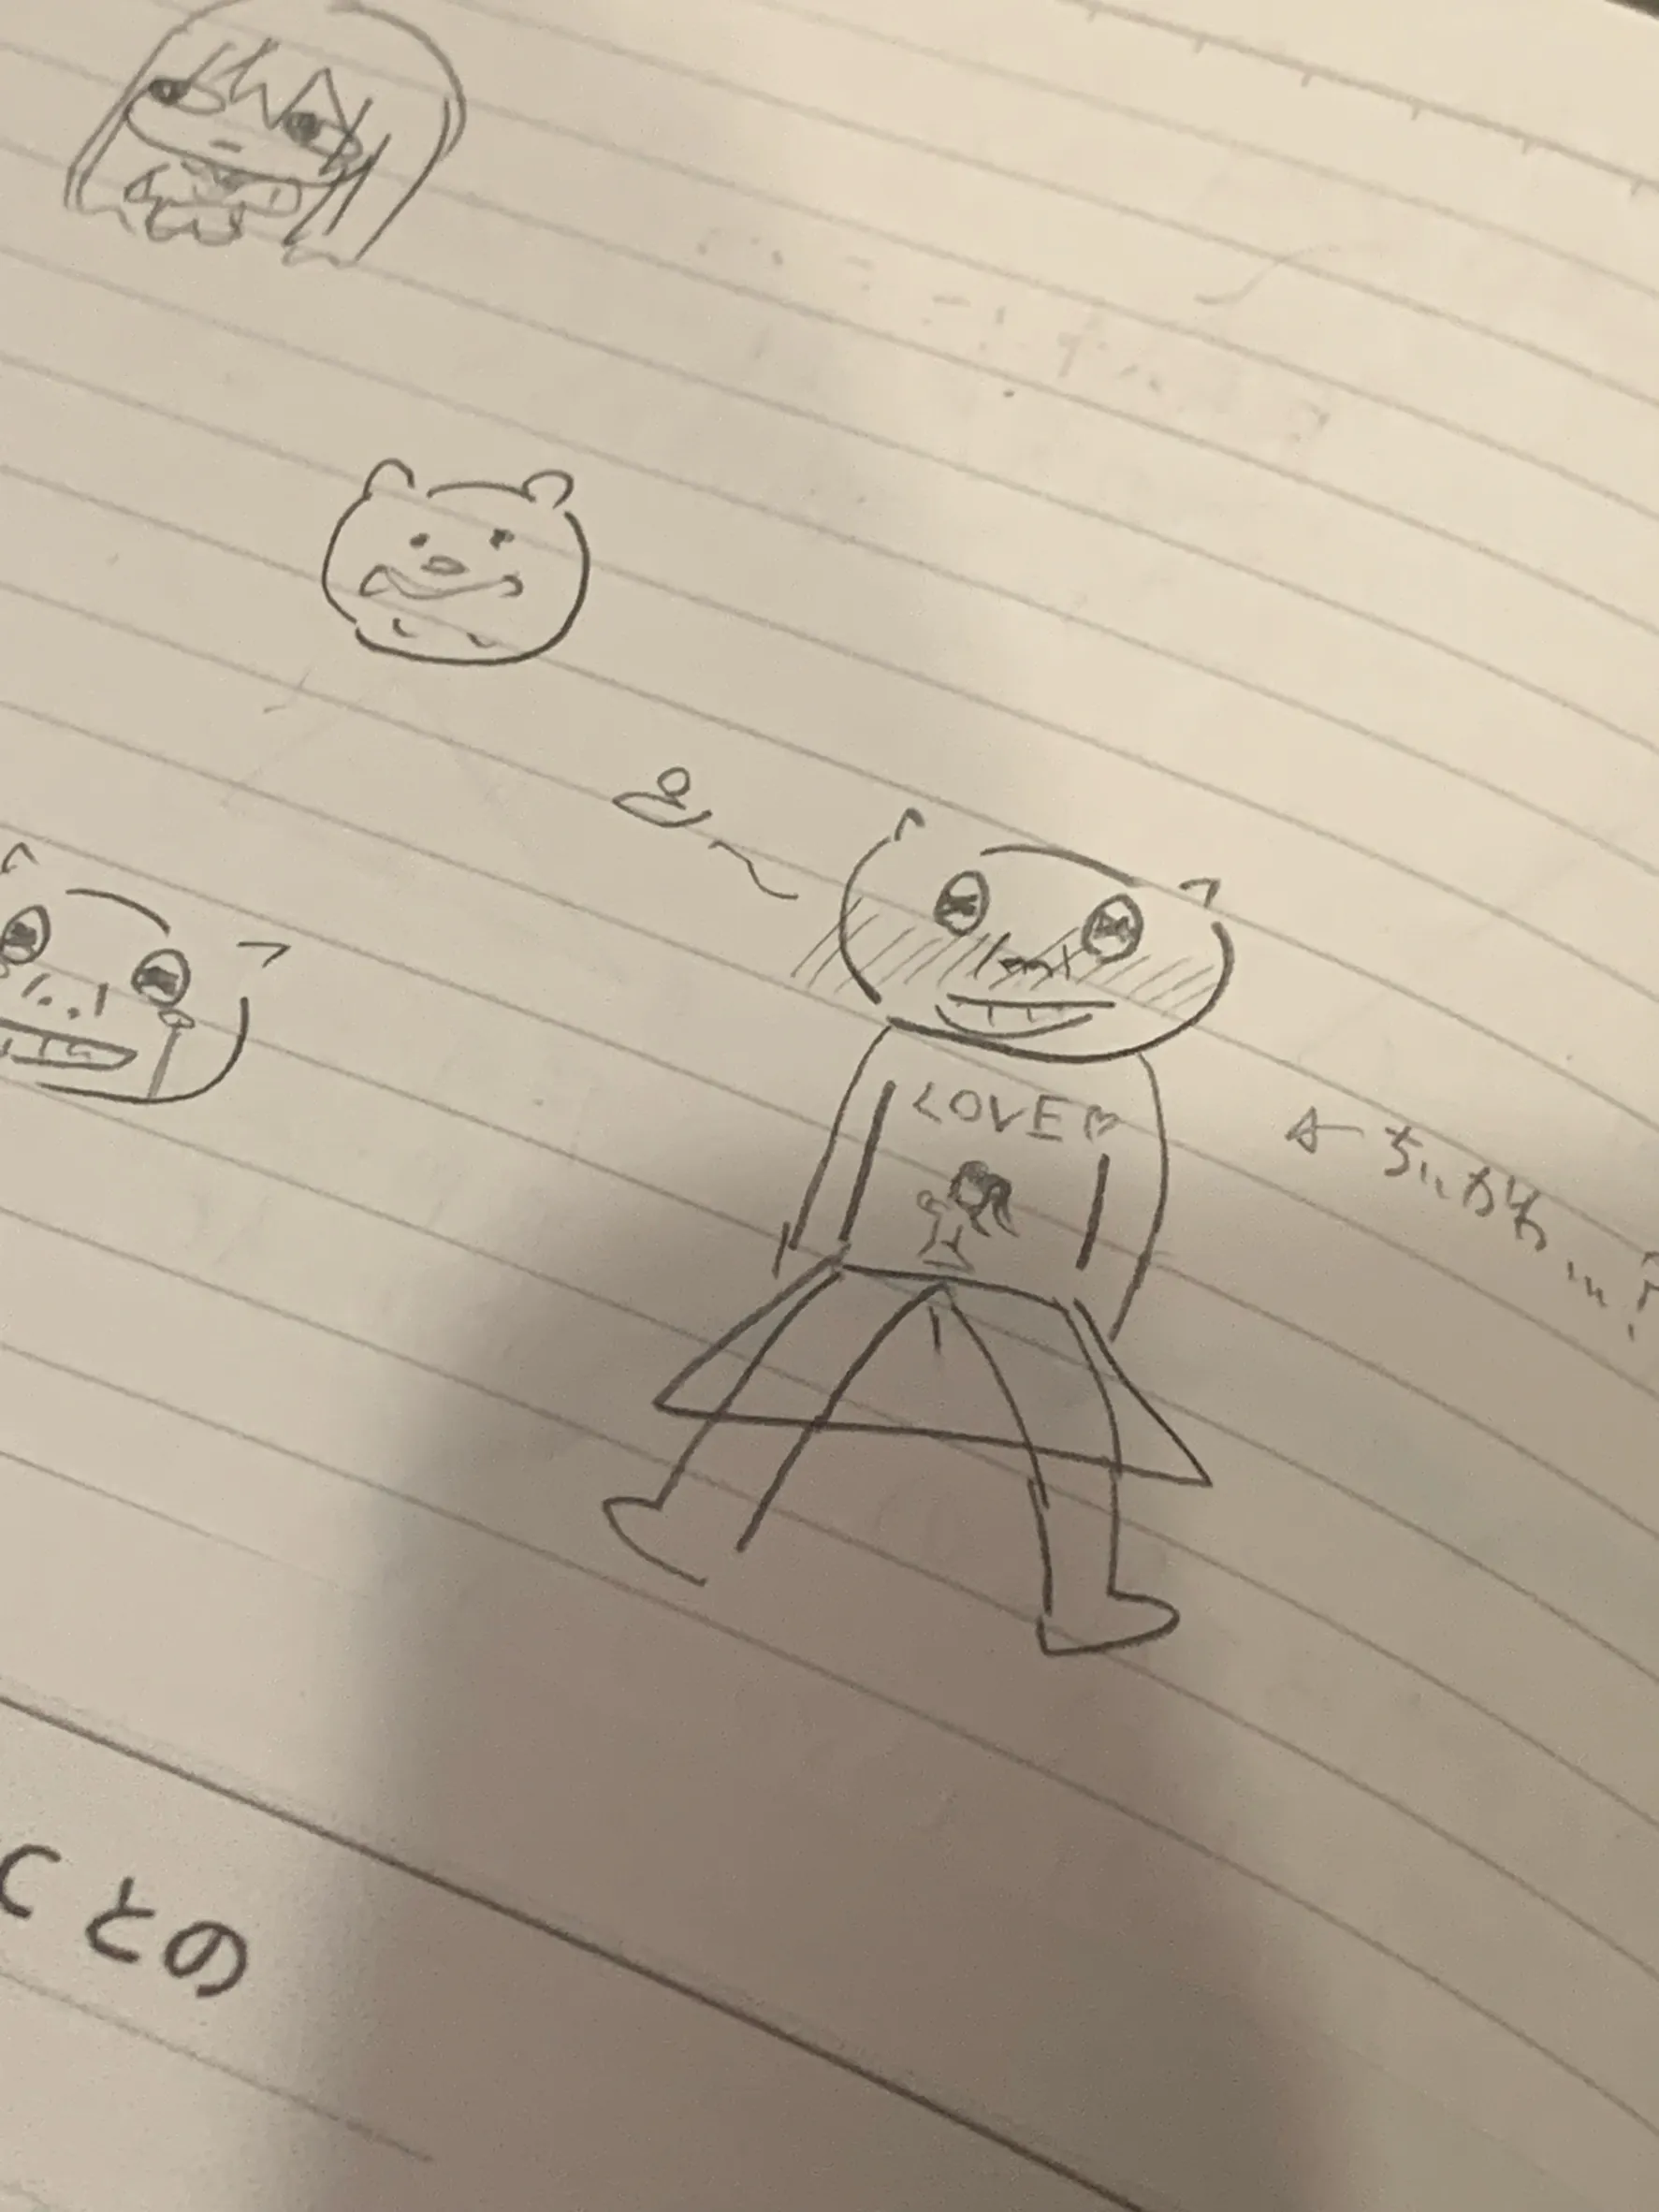 LOVE♡
←ちいかわ…?
との